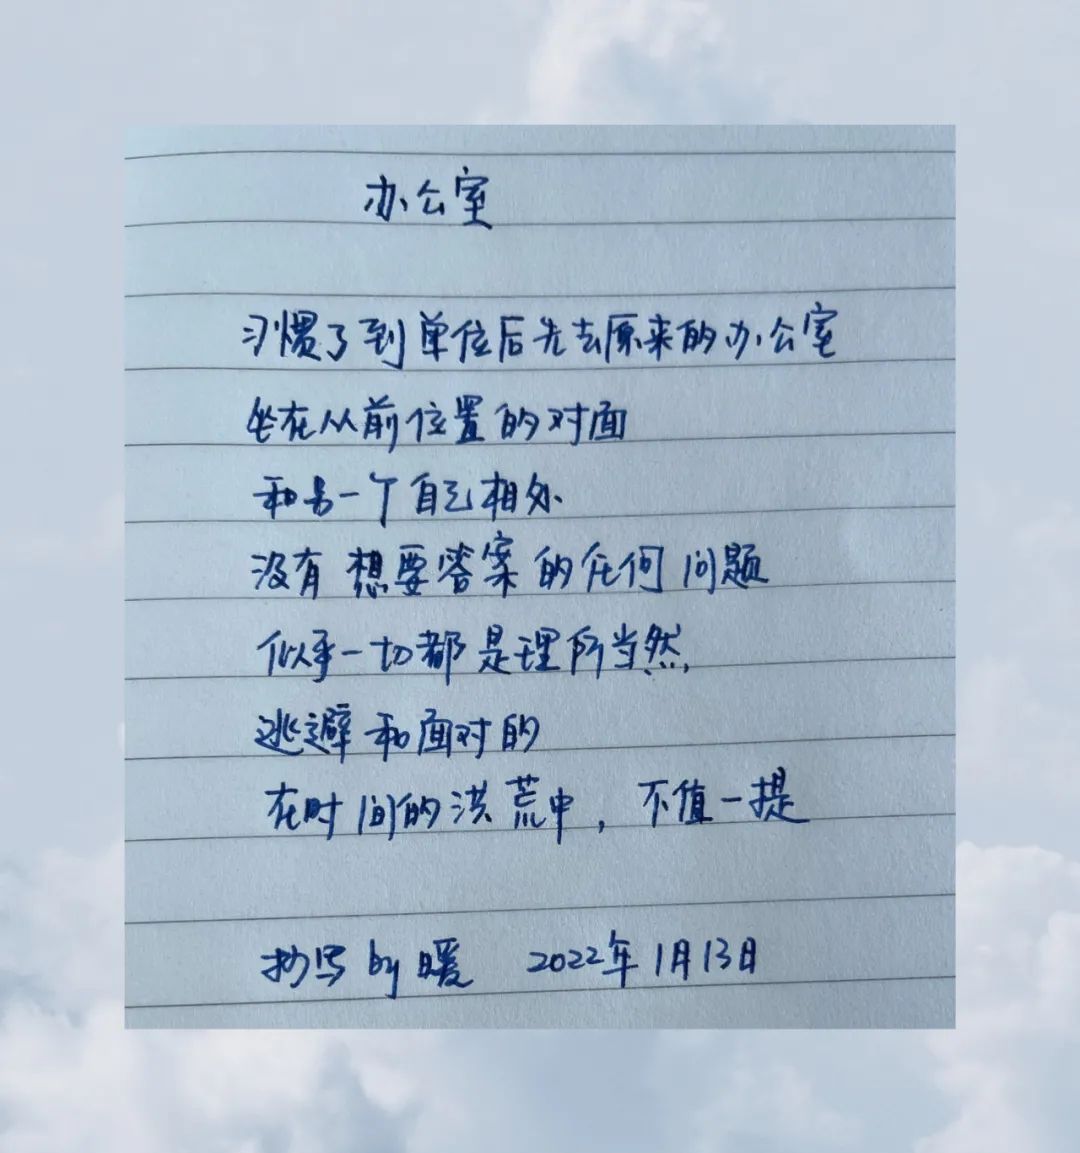 办公室
习惯了到单位后先去原来的办公室
坐在从前位置的对面
和另一个自己相处
没有想要答案的任何问题
似乎一切都是理所当然
逃避和面对的
在时间的洪荒中，不值一提
抄写by暖 2022年1月13日